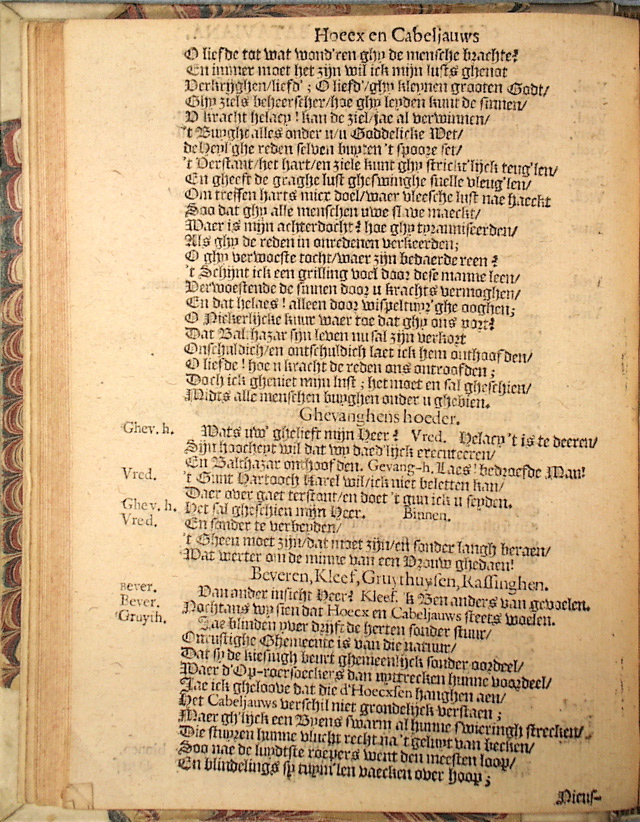 Hoecx en Cabeljauws
O liefde tot wat wond'ren ghy de mensche brachte?
En immer moet het zijn wil ick mijn lusts ghenot
Verkrijghen/liefd'; O liefd'/ghy kleynen grooten Godt/
Ghy ziels beheerscher/hoe ghy leyden kunt de sinnen/
U kracht helacy! kan de ziel/jae al verwinnen/
't Buyght alles onder u/u Goddelicke Wet/
de heyl'ghe reden selven buyten 't spoore set/
't Verstant/het hart/en ziele kunt ghy strickt'lijck teug'len/
En gheeft de graghe lust gheswinghe snelle vleug'len/
Om treffen harts micx doel/waer vleesche lust nae haeckt
Soo dat ghy alle menschen uwe slave maeckt/
Waer is mijn achterdocht? hoe ghy tyranniseerden/
Als ghy de reden in onredenen verkeerden;
O ghy verwoeste tocht/waer zijn bedaerde reen?
't Schijnt ick een grilling voel door dese manne leen/
Verwoestende de sinnen door u krachts vermoghen/
En dat helaes! alleen door wispeltuyr'ghe ooghen;
O Nickerlijcke kuur waer toe dat ghy ons port?
Dat Balthazar sijn leven nu sal zijn verkort
Onschuldich/en ontschuldich laet ick hem onthoofden/
O liefde! hoe u kracht de reden ons ontroofden;
Doch ick gheniet mijn lust; het moet en sal gheschien/
Midts alle menschen buyghen onder u ghebien.
Ghevanghens hoeder.
Ghev. h. Wats uw' ghelieft mijn Heer? Vred. Helacy 't is te deeren/
Sijn Hoocheyt wil dat wy daed'lijck executeeren/
En Balthazar onthoofden. Gevang-h. Laes! bedroefde Man!
Vred. 't Gunt Hartooch Karel wil/ick niet beletten kan/
Daer over gaet terstont/en doet 't gun ick u seyden.
Ghev. h. Het sal gheschien mijn Heer. Binnen.
Vred. En sonder te verbeyden/
't Gheen moet zijn/dat moet zijn/en sonder langh beraen/
Wat werter om de minne van een Vrouw ghedaen!
Beveren, Kleef, Gruythuysen, Rassinghen.
Bever. Van ander insicht Heer? Kleef. 'k Ben anders van gevoelen.
Bever. Nochtans wy sien dat Hoecx en Cabeljauws steets woelen.
Gruyth. Jae blinden yver drijft de herten sonder stuur/
Onrustighe Ghemeente is van die natuur/
Dat sy de kiesingh beurt ghemeen'lijck sonder oordeel/
Waer d'Op-roersoeckers dan uyttrecken hunne voordeel/
Jae ick gheloove dat die d'Hoecxsen hanghen aen/
Het Cabeljauws verschil niet grondelijck verstaen;
Maer gh'lijck een Byens swarm al hunne swieringh strecken/
Die stuyren hunne vlucht recht na't geluyt van becken/
Soo nae de luydtste roepers went den meesten loop/
En blindelings sy tuym'len vaecken over hoop;
Nieus-